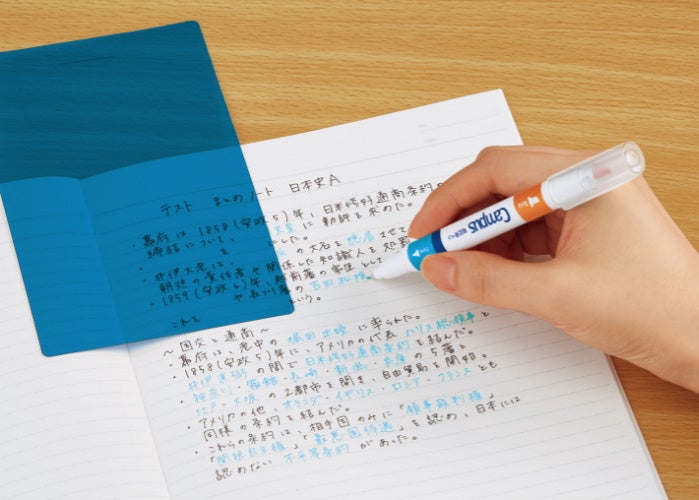 テスト まとめノート 日本史A
・幕府は1858(安政5)年、日本修好通商条約の
締結について、 天皇 に勅許を求めた。
にした。
の大名を隠居させて
・井伊大老は、 した知識人を処罰
朝廷の責任者や関係
・1859(安政6)年、 の家臣として
や長州藩の吉田松陰
という。
これを
〜国交と通商〜
・幕府は、老中の堀田正睦に率られた。
・1858(安政5)年に、アメリカの代表ハリス総領事と
井伊直弼の間で日米修好通商条約を結んだ。
・神奈川・箱館・長崎・新潟・兵庫の5港と
江戸・大坂の2都市を開き、自由貿易を開始。
・アメリカの他、オランダ・イギリス・ロシア・フランスとも
同様の条約を結んだ。
・これらの条約は、相手国のみに「領事裁判権」
「関税自主権」「最恵国待遇」を認め、日本には
認めない不平等条約があった。
Campus